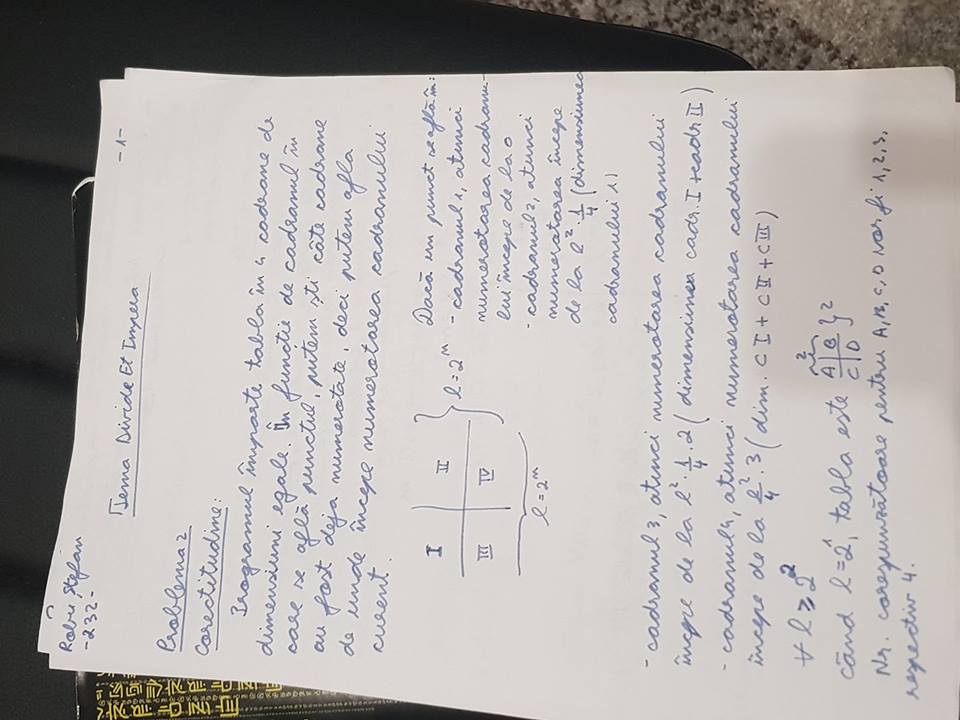 Robu Ștefan
-232-
-1-
Tema Divide Et Impera
Problema 2
Corectitudine:
Programul împarte tabla în 4 cadrane de
dimensiuni egale. În funcție de cadranul în
care se află punctul, putem ști câte cadrane
au fost deja numerotate, deci putem afla
de unde începe numerotarea cadranului
curent.
I II
III IV
l = 2^n
l = 2^n
Dacă un punct se află în:
- cadranul 1, atunci
numerotarea cadranu-
lui începe de la 0
- cadranul 2, atunci
numerotarea începe
de la l² · 1/4 (dimensiunea
cadranului 1)
- cadranul 3, atunci numerotarea cadranului
începe de la l² · 1/4 · 2 (dimensiunea cadr. I + cadr II)
- cadranul 4, atunci numerotarea cadranului
începe de la l²/4 · 3 (dim. C I + C II + C III)
∀ l ≥ 2²
când l = 2¹, tabla este
2
A B
C D
2
Nr. corespunzătoare pentru A, B, C, D vor fi 1, 2, 3,
respectiv 4.